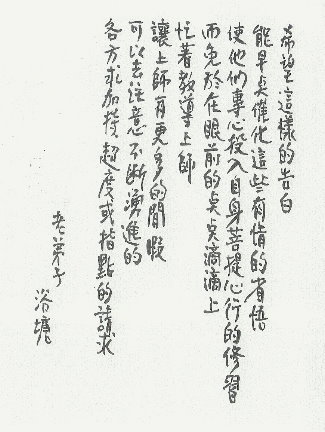 希望這樣的告白
能早点催化這些有情的省悟
使他們專心投入自身菩提心行的修習
而免於在眼前的点点滴滴上
忙著教導上師
讓上師有更多的閒暇
可以去注意不斷湧進的
各方求加持超度或指點的請求
老弟子
浴塘